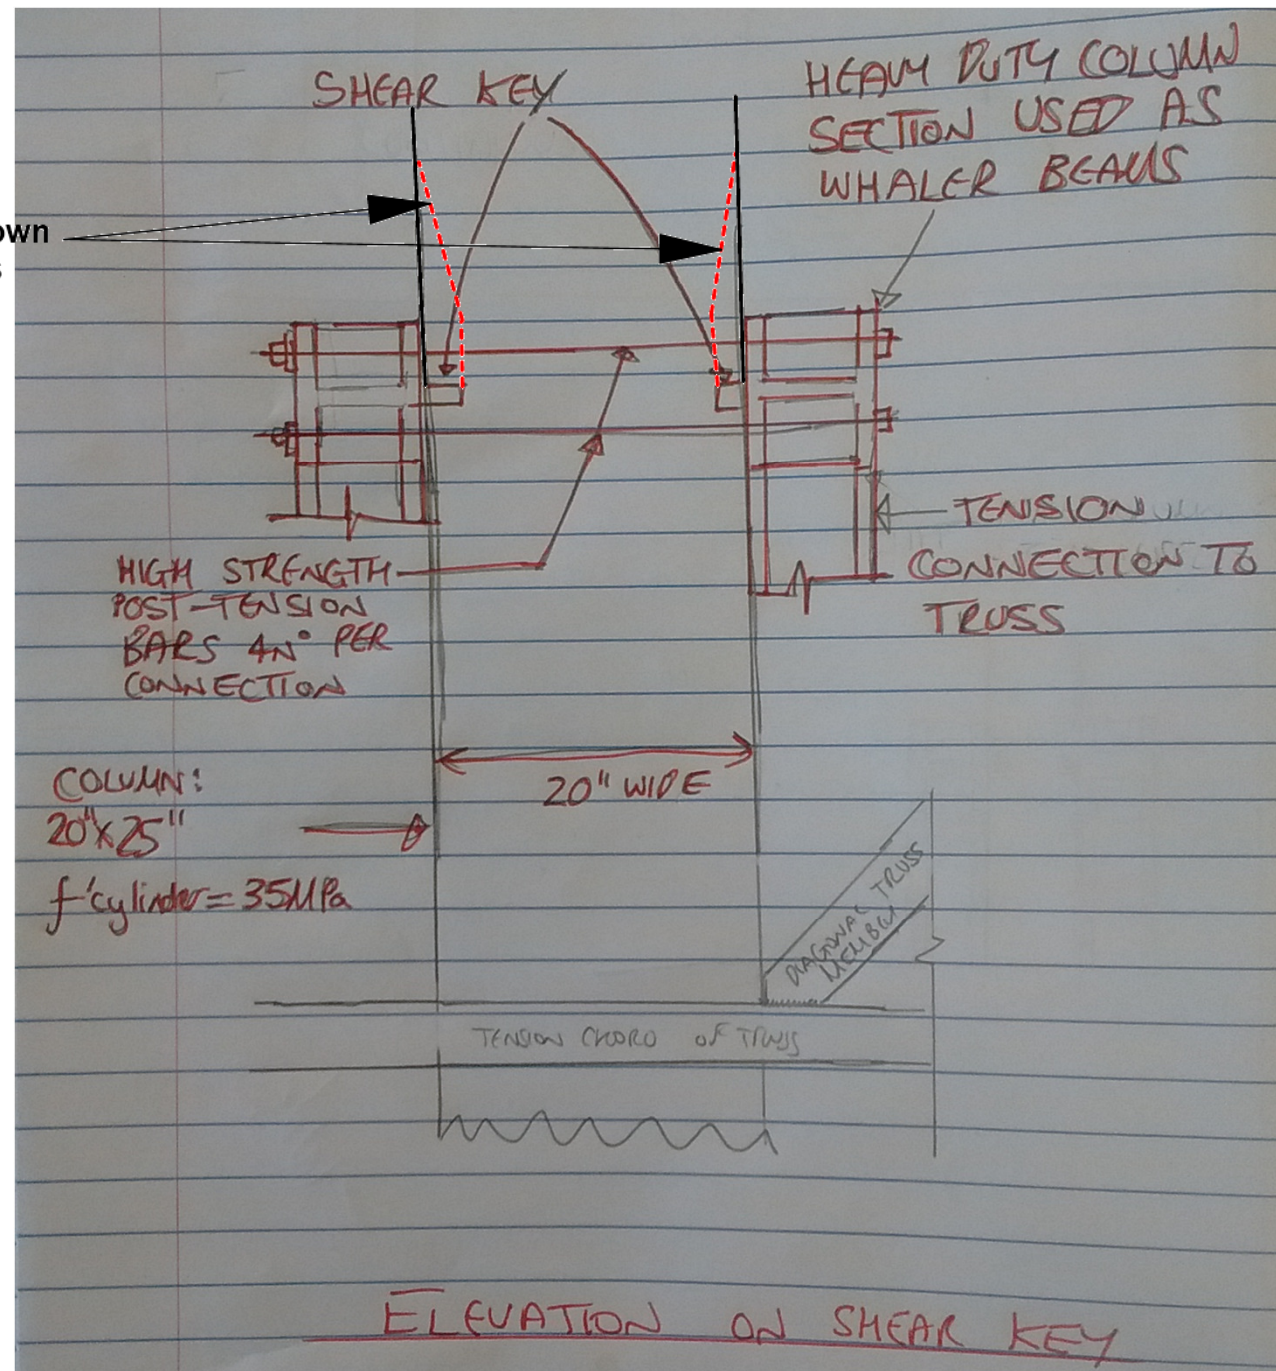 SHEAR KEY
HEAVY DUTY COLUMN
SECTION USED AS
WHALER BEAMS
own
s
TENSION
CONNECTION TO
TRUSS
HIGH STRENGTH
POST-TENSION
BARS 4N° PER
CONNECTION
20" WIDE
COLUMN:
20"X25"
f'cylinder = 35MPa
DIAGONAL TRUSS
MEMBER
TENSION CHORD OF TRUSS
ELEVATION ON SHEAR KEY